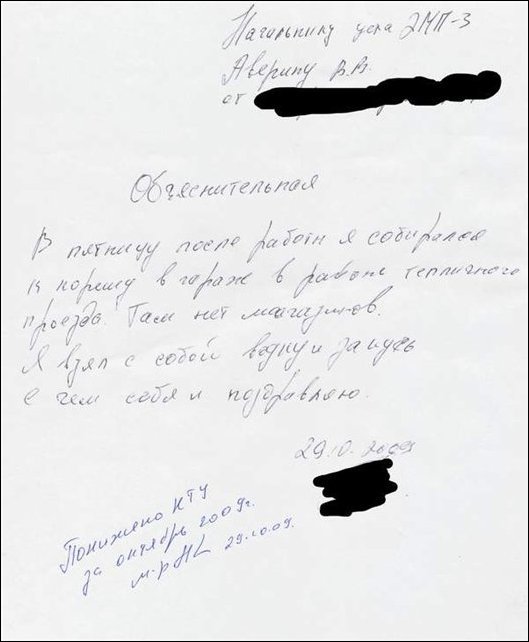 Начальнику уска ЭМП-3
Аверину В.В.
от
Объяснительная
В пятницу после работы я собирался
к корешу в гараж в районе тепличного
проезда. Там нет магазинов.
Я взял с собой водку и закусь
с чем себя и поздравляю.
29.10.2009
Понижено КТУ
за октябрь 2009г.
м-р 29.10.09.